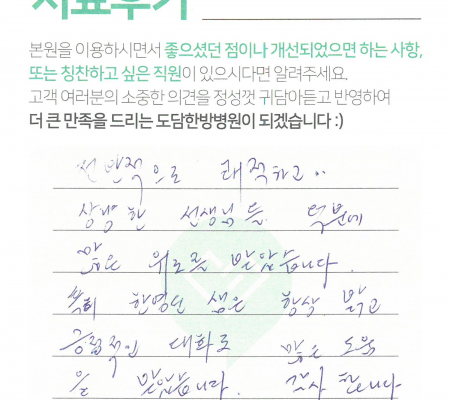 치료후기
본원을 이용하시면서 좋으셨던 점이나 개선되었으면 하는 사항,
또는 칭찬하고 싶은 직원이 있으시다면 알려주세요.
고객 여러분의 소중한 의견을 정성껏 귀담아듣고 반영하여
더 큰 만족을 드리는 도담한방병원이 되겠습니다 :)
전반적으로 쾌적하고..
상냥한 선생님들 덕분에
많은 위로를 받았습니다.
특히 한영선 샘은 항상 밝고
긍정적인 대화로 많은 도움
을 받았습니다. 감사합니다